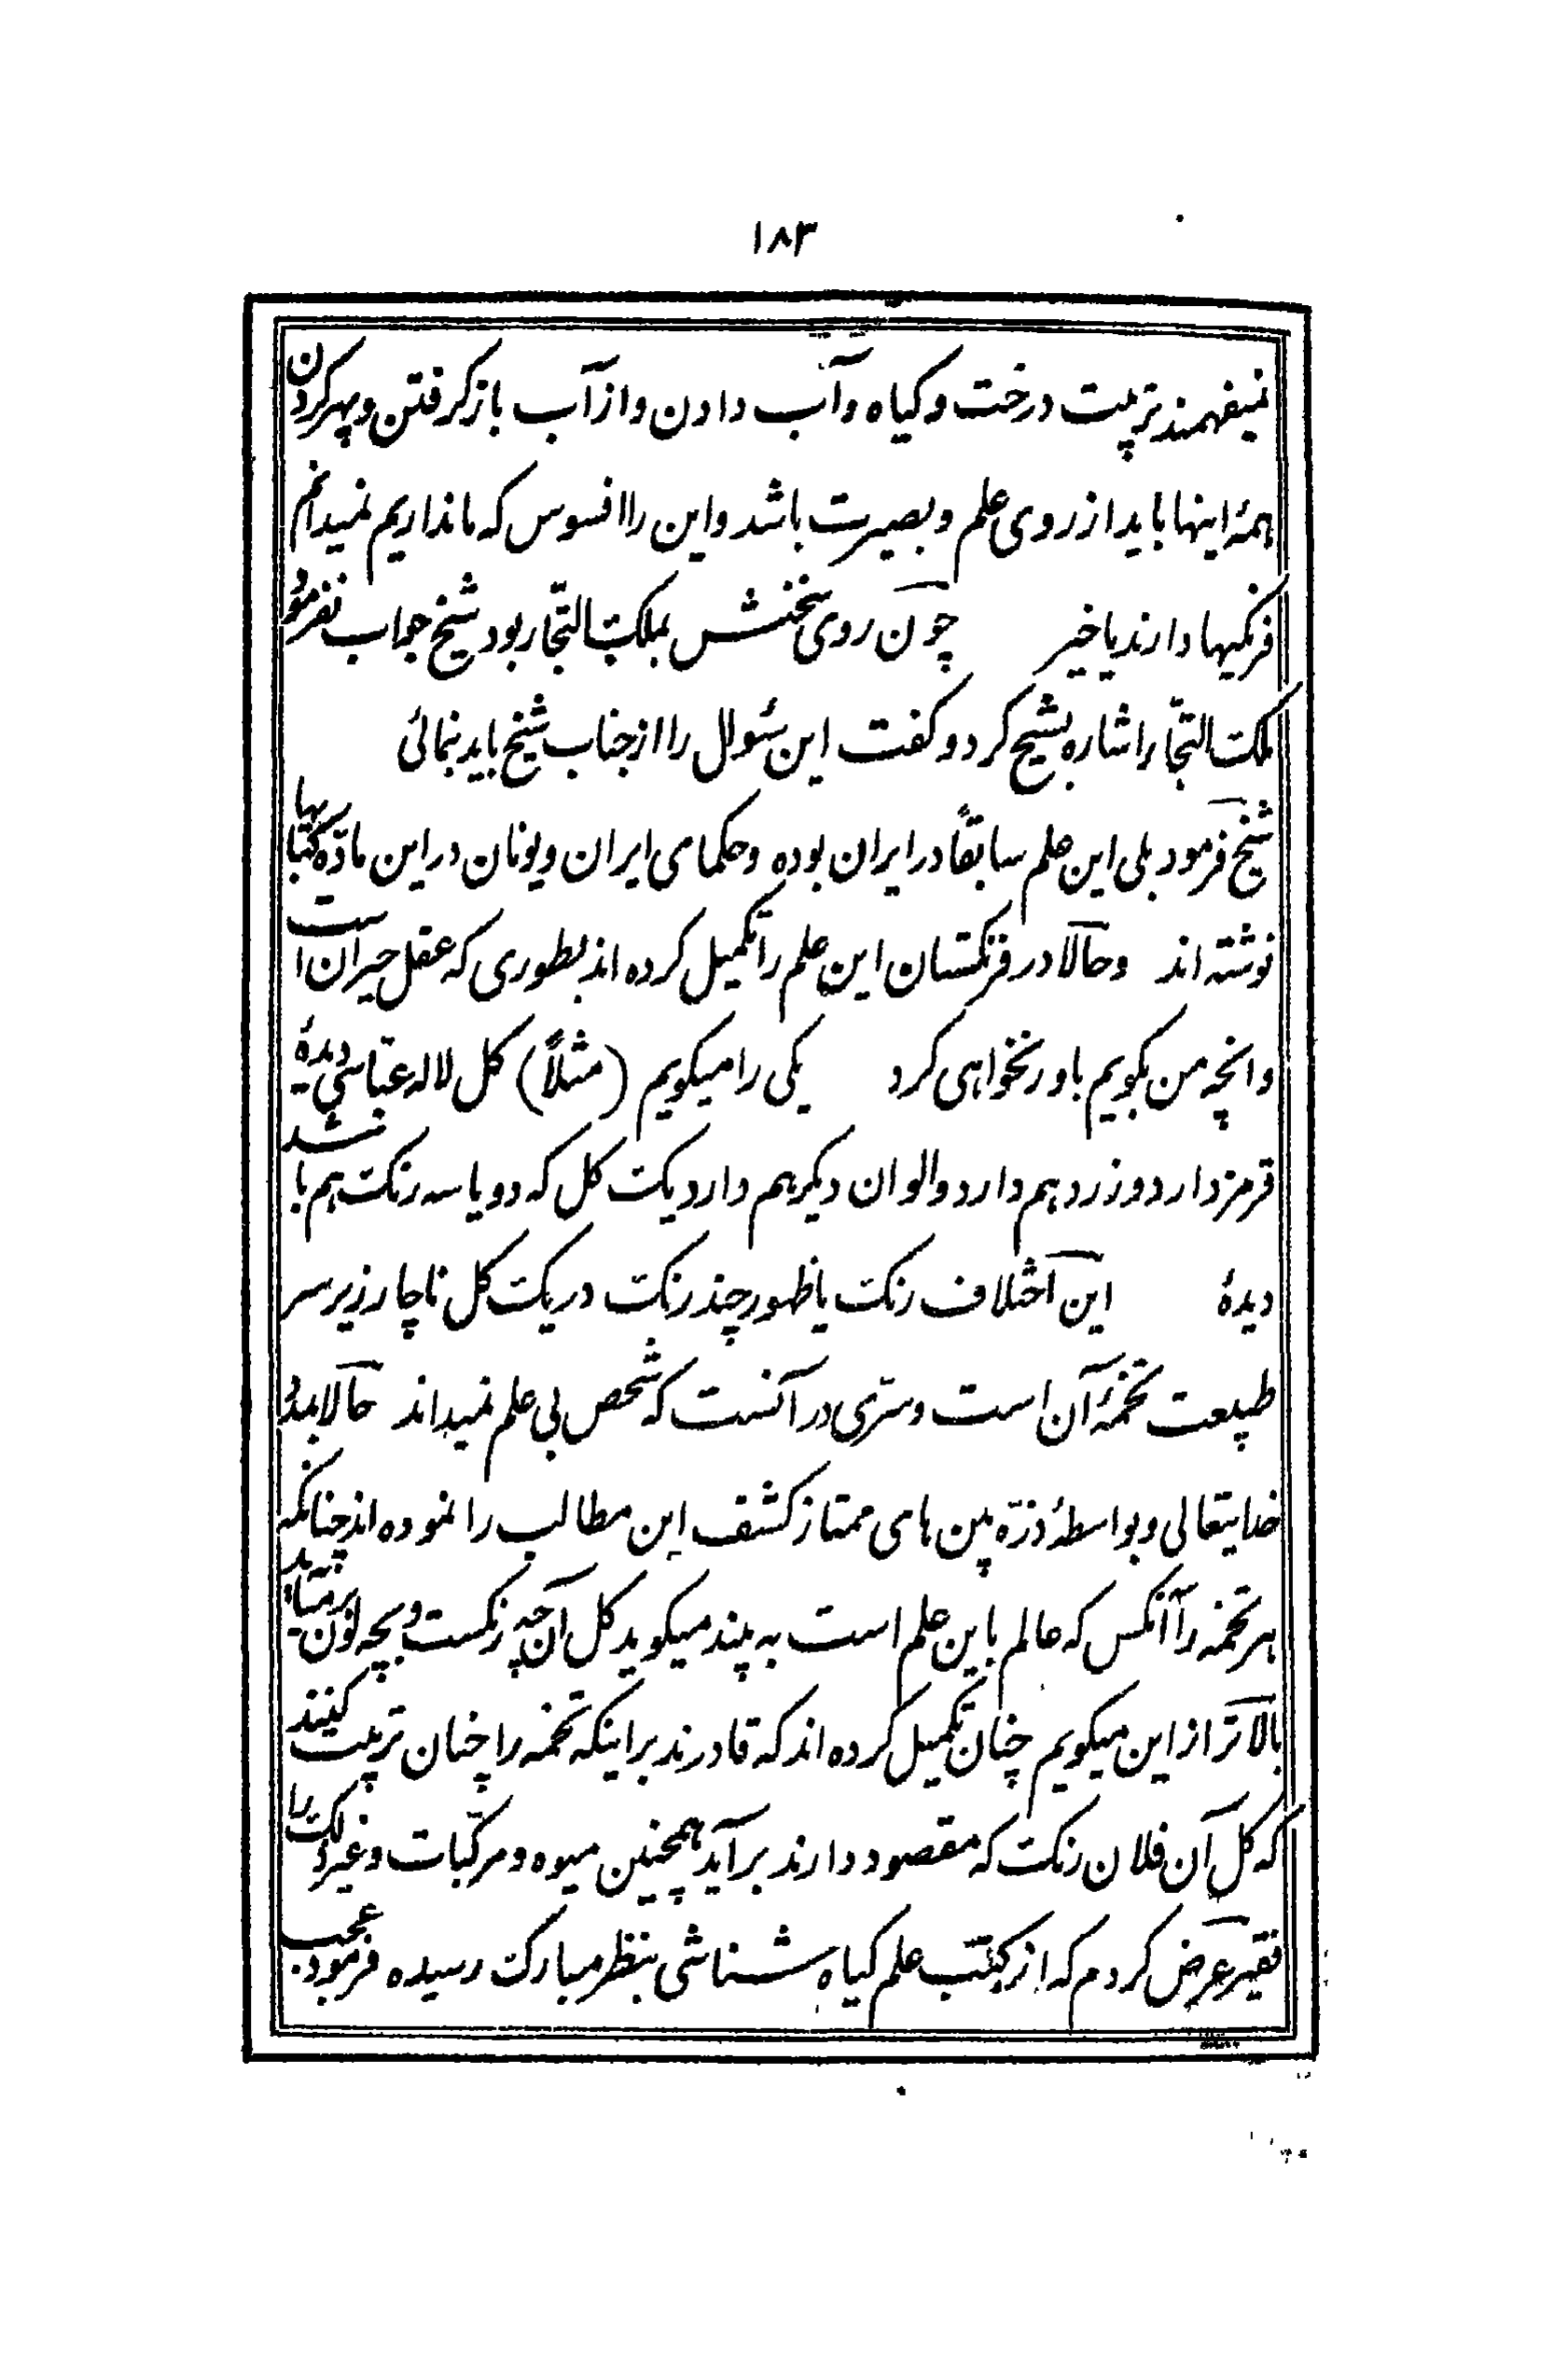 ۱۸۳
نمیفهمند تربیت درخت و کیاه و آب دادن و از آب باز کرفتن و پهر کردن
همهٔ اینها باید از روی علم و بصیرت باشد و این را افسوس که ما نداریم نمیدانم
فرنکیها دارند یا خیر چون روی سخنش بملک التجّار بود شیخ جواب نفرمود
ملک التجّار اشاره بشیخ کرد و کفت این سئوال را از جناب شیخ باید بنمائی
شیخ فرمود بلی این علم سابقاً در ایران بوده و حکمای ایران و یونان در این مادّه کتابها
نوشته اند و حالا در فرنکستان این علم را تکمیل کرده اند بطوری که عقل حیران است
و انچه من بکویم باور نخواهی کرد یکی را میکویم (مثلاً) کل لاله عبّاسی دیدهٔ
قرمز دارد و زرد هم دارد و الوان دیکر هم دارد یک کل که دو یا سه رنک هم باشد
دیدهٔ این اختلاف رنک یا ظهور چند رنک در یک کل ناچار زیر سر
طبیعت تخمهٔ آن است و سرّی در آنست که شخص بی علم نمیداند حالا بمدد
خدایتعالی و بواسطهٔ ذرّه بین های ممتاز کشف این مطالب را نموده اند چنانکه
هر تخمه را آنکس که عالم باین علم است به بیند میکوید کل آن چه رنکست و بچه لون بر میآید
بالاتر از این میکویم چنان تکمیل کرده اند که قادرند بر اینکه تخمه را چنان تربیت کنند
که کل آن فلان رنک که مقصود دارند بر آید همچنین میوه و مرکّبات و غیر ذلک را
فقیر عرض کردم که از کتب علم کیاه شناشی بنظر مبارک رسیده فرمود عجب